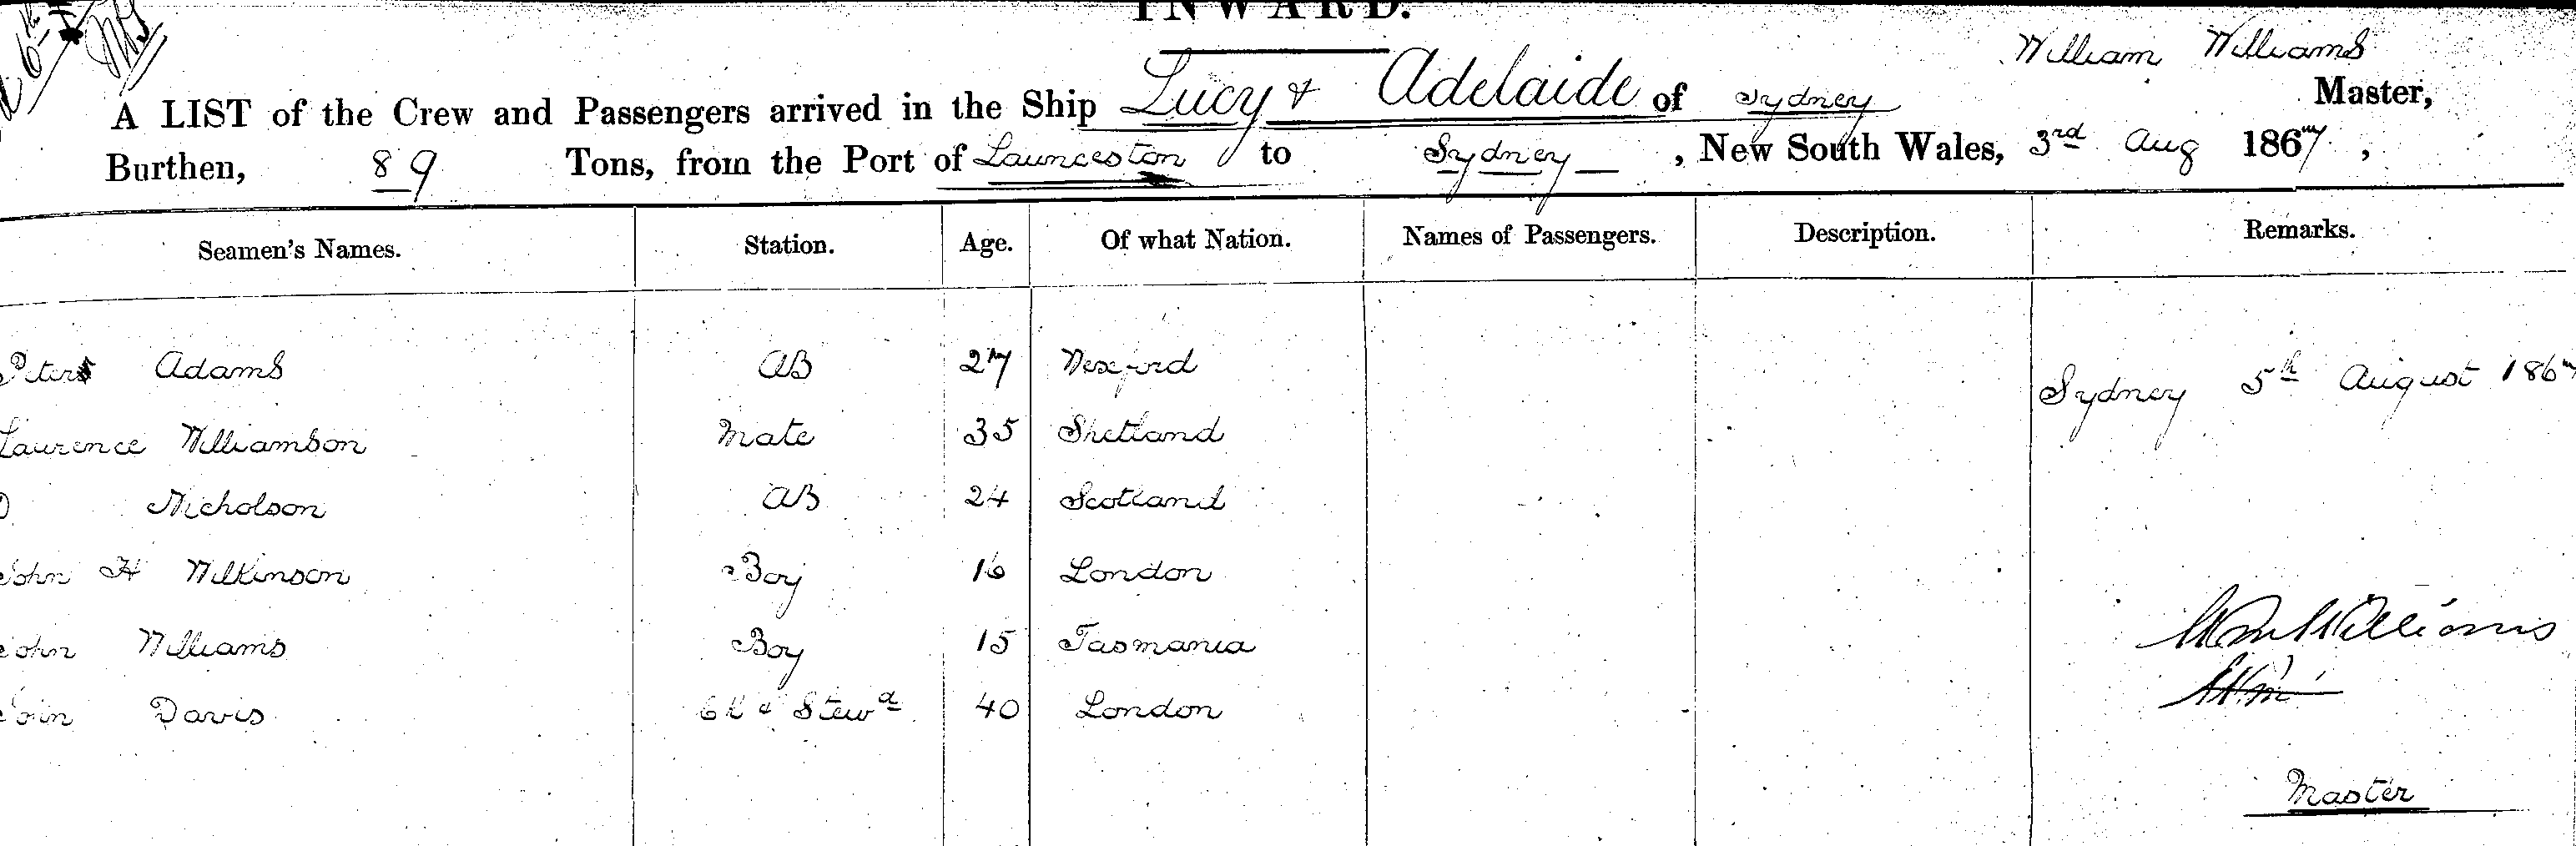 INWARD.
William Williams
A LIST of the Crew and Passengers arrived in the Ship Lucy & Adelaide of Sydney Master,
Burthen, 89 Tons, from the Port of Launceston to Sydney, New South Wales, 3rd Aug 1867,
Seamen's Names. Station. Age. Of what Nation. Names of Passengers. Description. Remarks.
Peter Adams AB 27 Wexford Sydney 5th August 1867
Laurence Williamson Mate 35 Shetland
Nicholson AB 24 Scotland
John H Wilkinson Boy 16 London
John Williams Boy 15 Tasmania
Wm Williams
John Davis Ck & Stewd 40 London
Master